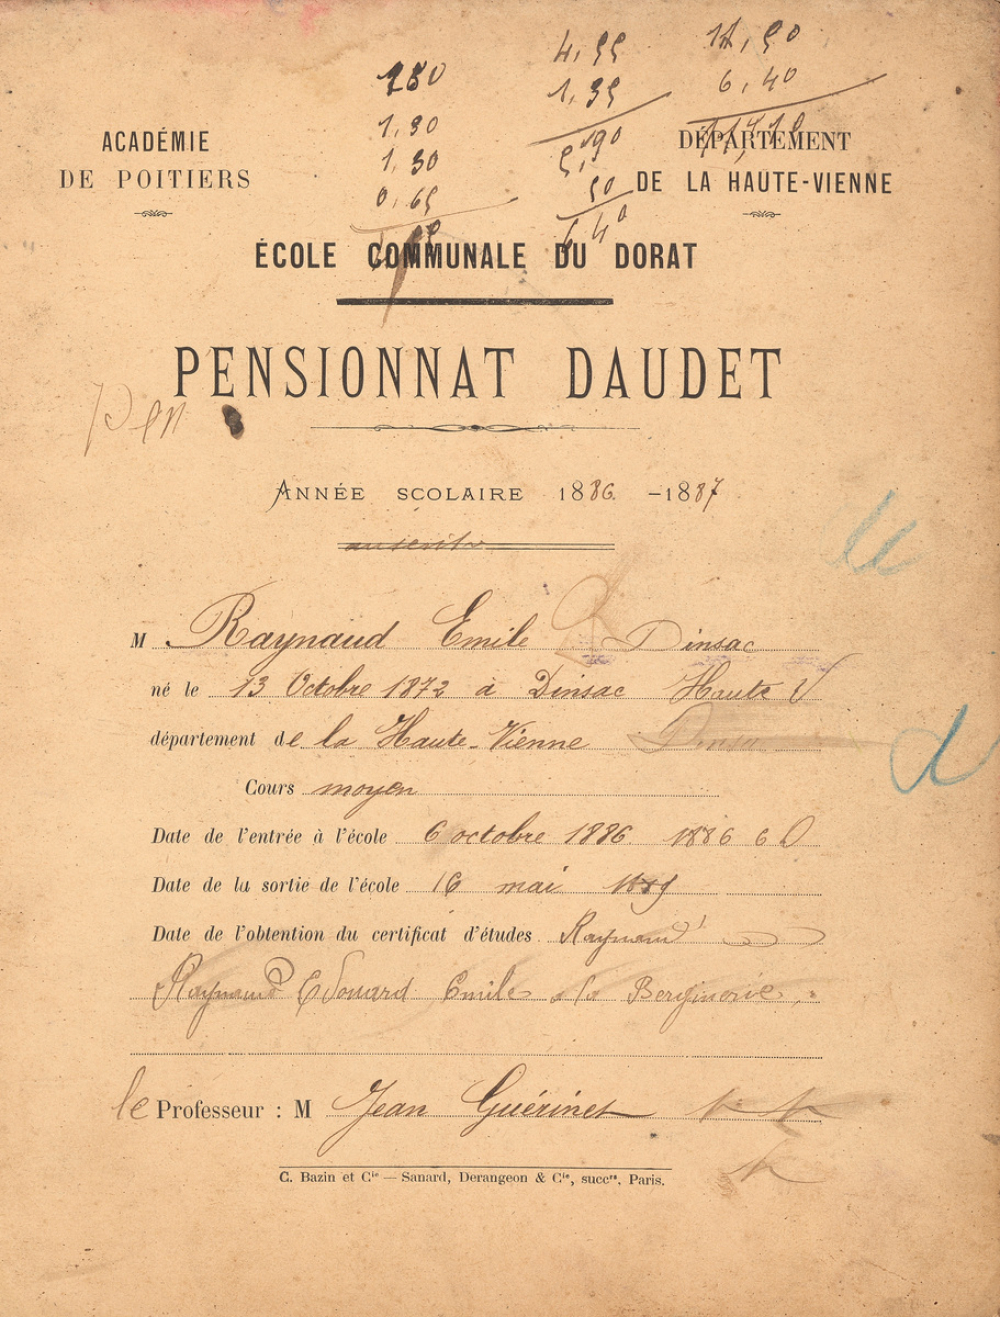 4,55
1,35
5,90
50
6,40
11,50
6,40
1,30
1,30
0,65
ACADÉMIE
DE POITIERS
DÉPARTEMENT
DE LA HAUTE-VIENNE
ÉCOLE COMMUNALE DU DORAT
PENSIONNAT DAUDET
Pen
ANNÉE SCOLAIRE 1886. -1887
M Raynaud Emile Dinsac
né le 13 Octobre 1872 à Dinsac Haute V
département de la Haute-Vienne Dinsa
Cours moyen
Date de l'entrée à l'école 6 octobre 1886. 1886 6 O
Date de la sortie de l'école 16 mai
Date de l'obtention du certificat d'études Raynaud
Raynaud Edouard Emile à la
le Professeur : M Jean Guérinet
C. Bazin et Cie — Sanard, Derangeon & Cie, succrs, Paris.